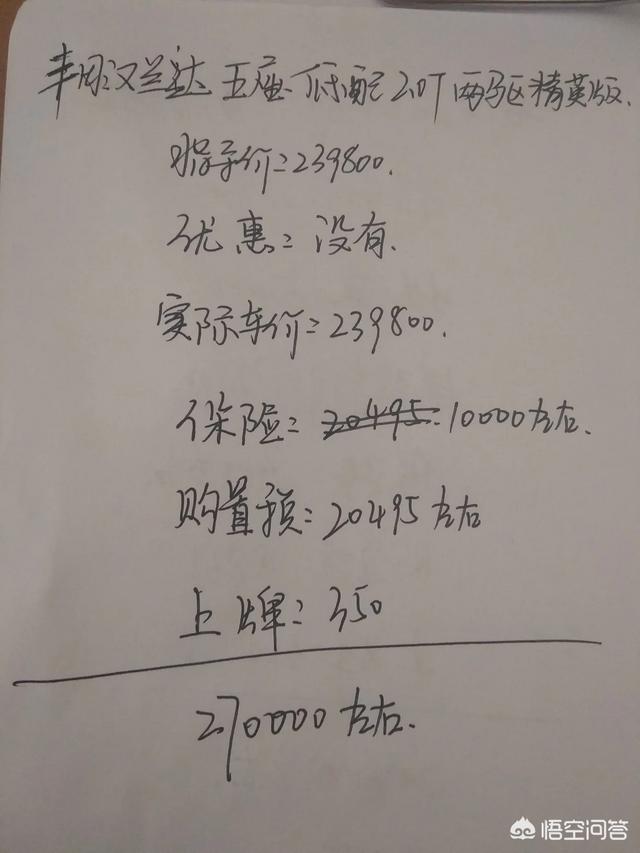 丰田汉兰达 五座低配 2.0T 两驱精英版.
指导价=239800.
优惠=没有.
实际车价=239800.
保险=20495.10000左右.
购置税=20495左右
上牌=350
270000左右.
悟空问答